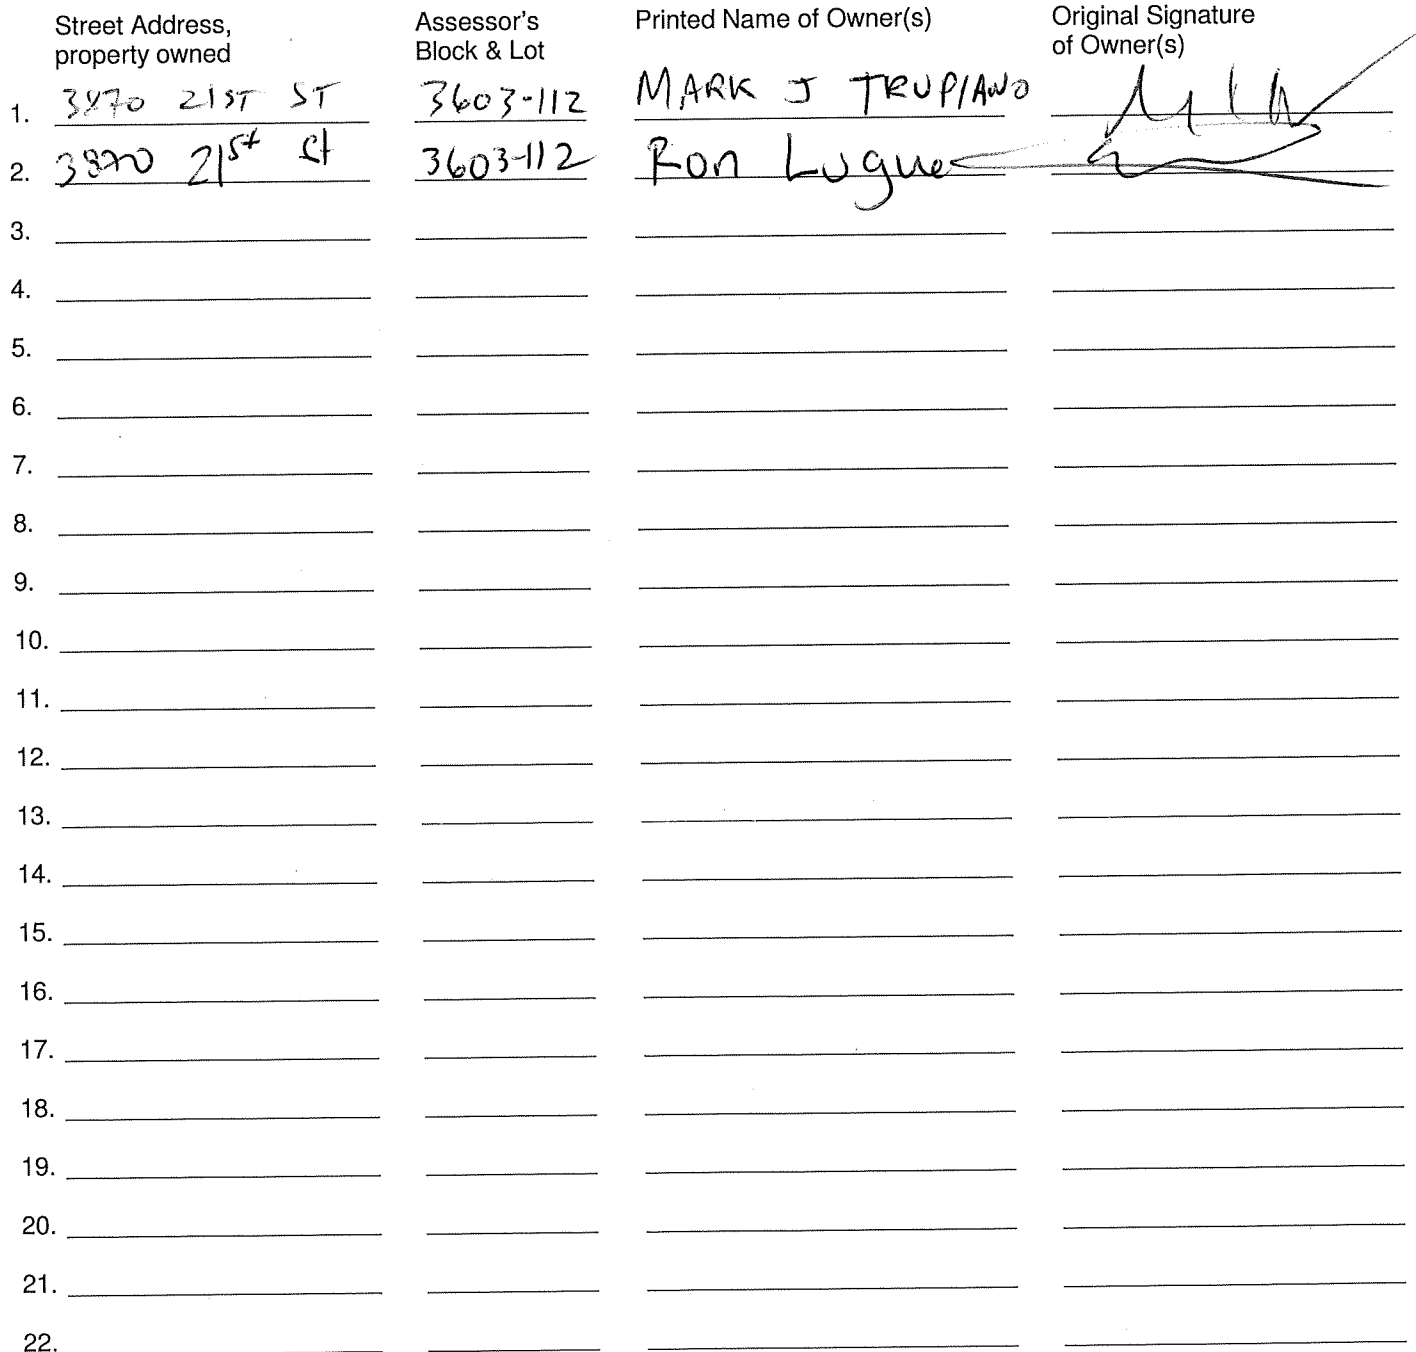 Street Address, property owned Assessor's Block & Lot Printed Name of Owner(s) Original Signature of Owner(s)
1. 3870 21ST ST 3603-112 MARK J TRUPIANO
2. 3870 21st St 3603-112 Ron Lugue
3.
4.
5.
6.
7.
8.
9.
10.
11.
12.
13.
14.
15.
16.
17.
18.
19.
20.
21.
22.